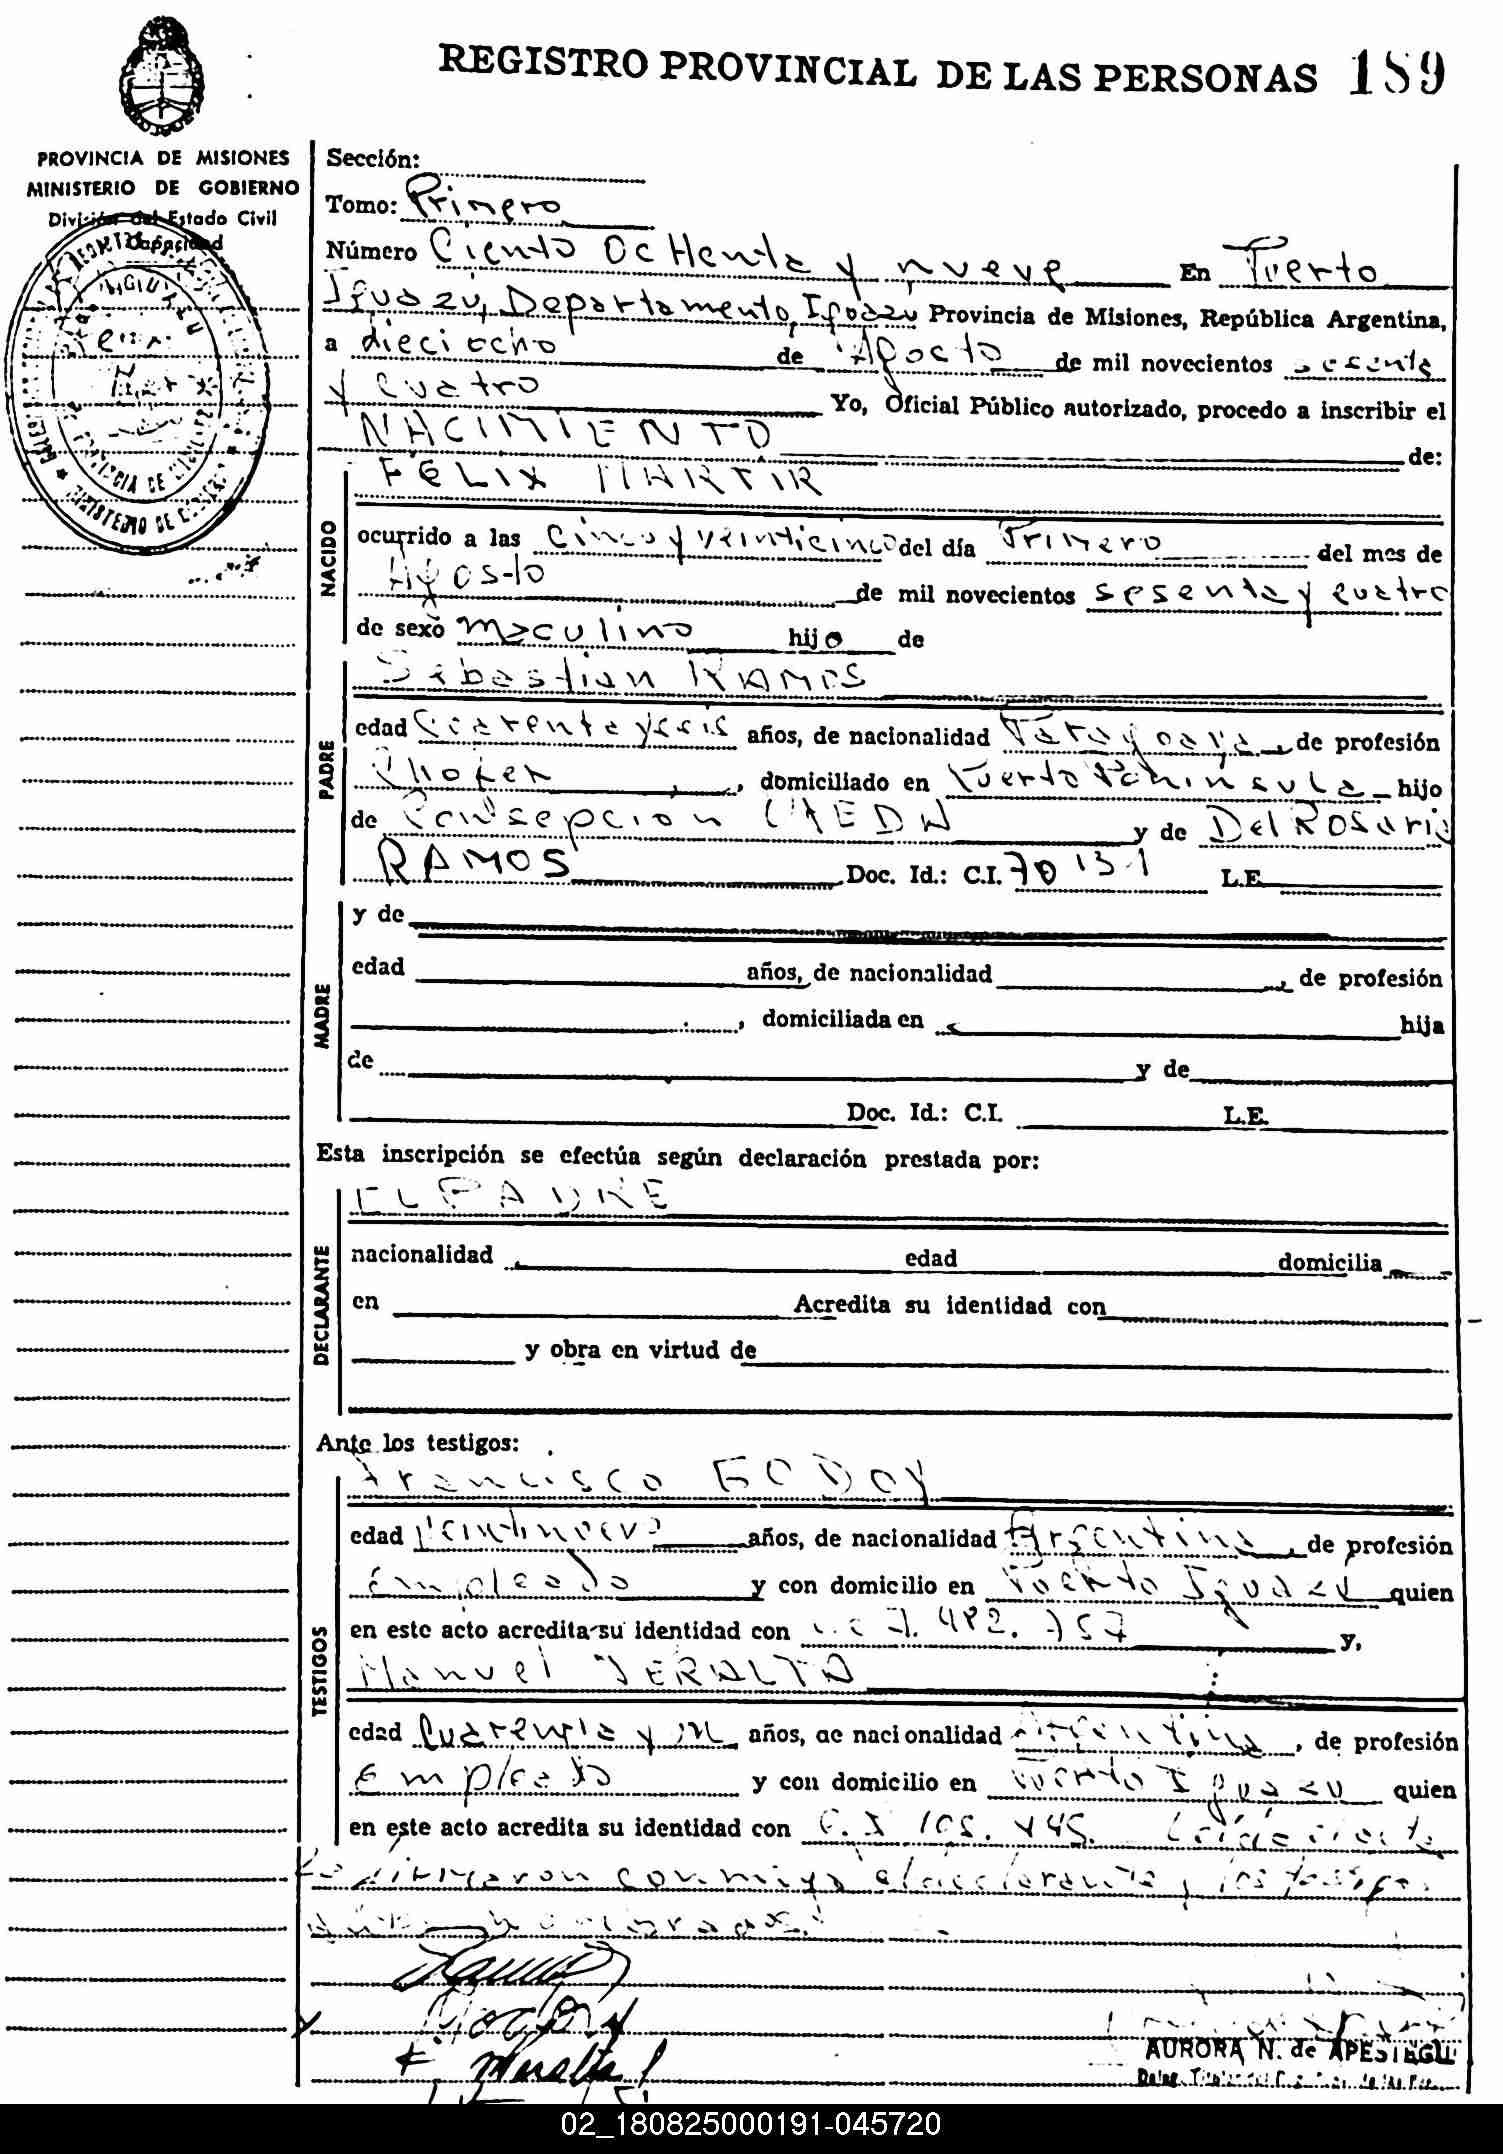 REGISTRO PROVINCIAL DE LAS PERSONAS 189
PROVINCIA DE MISIONES
MINISTERIO DE GOBIERNO
División del Estado Civil
Capacidad
Sección:
Tomo: Primero
Número Ciento Ochenta y nueve En Puerto
Iguazú, Departamento Iguazú Provincia de Misiones, República Argentina,
a dieciocho de Agosto de mil novecientos sesenta
y cuatro Yo, Oficial Público autorizado, procedo a inscribir el
NACIMIENTO de:
FELIX MARTIR
NACIDO
ocurrido a las Cinco y veinticinco del día Primero del mes de
Agosto de mil novecientos sesenta y cuatro
de sexo masculino hijo de
Sebastian RAMOS
PADRE
edad Cuarenta y seis años, de nacionalidad Paraguaya, de profesión
Chofer, domiciliado en Puerto Peninsula hijo
de Consepcion y de Del Rosario
RAMOS Doc. Id.: C.I. 70131 L.E.
MADRE
y de
edad años, de nacionalidad , de profesión
, domiciliada en hija
de y de
Doc. Id.: C.I. L.E.
Esta inscripción se efectúa según declaración prestada por:
EL PADRE
DECLARANTE
nacionalidad edad domicilia
en Acredita su identidad con
y obra en virtud de
Ante los testigos:
Francisco GODOY
TESTIGOS
edad Veintinueve años, de nacionalidad Argentina, de profesión
Empleado y con domicilio en Puerto Iguazu quien
en este acto acredita su identidad con 7.482.757 y,
Manuel PERALTA
edad Cuarenta y un años, de nacionalidad Argentina, de profesión
Empleado y con domicilio en Puerto Iguazu quien
en este acto acredita su identidad con Leida el acta
la firmaron conmigo el declarante y los testigos
AURORA N. de APESTEGUI
02_180825000191-045720